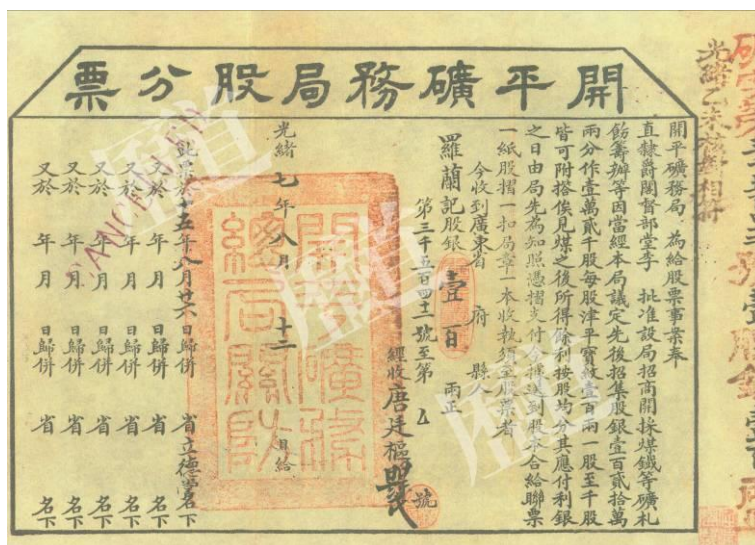 開平礦務局股分票
開平礦務局 為給股票事案奉
直隸爵閣督部堂李 批准設局招商開採煤鐵等礦札
飭籌辦等因當經本局議定先後招集股銀壹百貳拾萬
兩分作壹萬貳千股每股津平寶紋壹百兩一股至千股
皆可附搭俟見煤之後所得餘利按股均分其應付利銀
之日由局先為知照憑摺支付今據送到股本合給聯票
一紙股摺一扣局章一本收執須至股票者
今收到廣東省 府 縣人
羅蘭記股銀 壹百 兩正
第三千五百四十二號至第 號
經收唐廷樞
光緒七年八月十二日給
此票於十五年八月廿六日歸併 省立德堂名下
又於 年 月 日歸併 省 名下
又於 年 月 日歸併 省 名下
又於 年 月 日歸併 省 名下
又於 年 月 日歸併 省 名下
又於 年 月 日歸併 省 名下
開平礦務總局關防
光緒乙未核對相符
CANCELLED